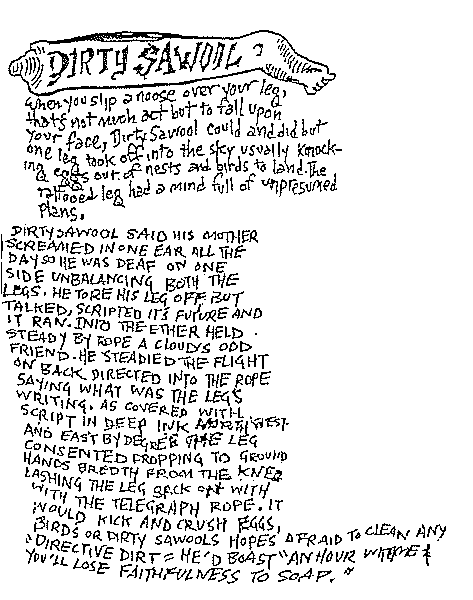 DIRTY SAWOOL
When you slip a noose over your leg,
that's not much act but to fall upon
your face, Dirty Sawool could and did but
one leg took off into the sky usually knock-
ing eggs out of nests and birds to land. The
tattooed leg had a mind full of unpresumed
plans.
DIRTY SAWOOL SAID HIS MOTHER
SCREAMED IN ONE EAR ALL THE
DAY SO HE WAS DEAF ON ONE
SIDE UNBALANCING BOTH THE
LEGS. HE TORE HIS LEG OFF BUT
TALKED, SCRIPTED IT'S FUTURE AND
IT RAN. INTO THE ETHER HELD
STEADY BY ROPE A CLOUD'S ODD
FRIEND. HE STEADIED THE FLIGHT
ON BACK DIRECTED INTO THE ROPE
SAYING WHAT WAS THE LEG'S
WRITING. AS COVERED WITH
SCRIPT IN DEEP INK NORTH WEST
AND EAST BY DEGREE THE LEG
CONSENTED DROPPING TO GROUND
HANDS BREDTH FROM THE KNEE
LASHING THE LEG BACK ON WITH
WITH THE TELEGRAPH ROPE. IT
WOULD KICK AND CRUSH EGGS,
BIRDS OR DIRTY SAWOOLS HOPES AFRAID TO CLEAN ANY
DIRECTIVE DIRT = HE'D BOAST "AN HOUR WITH ME &
YOU'LL LOSE FAITHFULNESS TO SOAP."